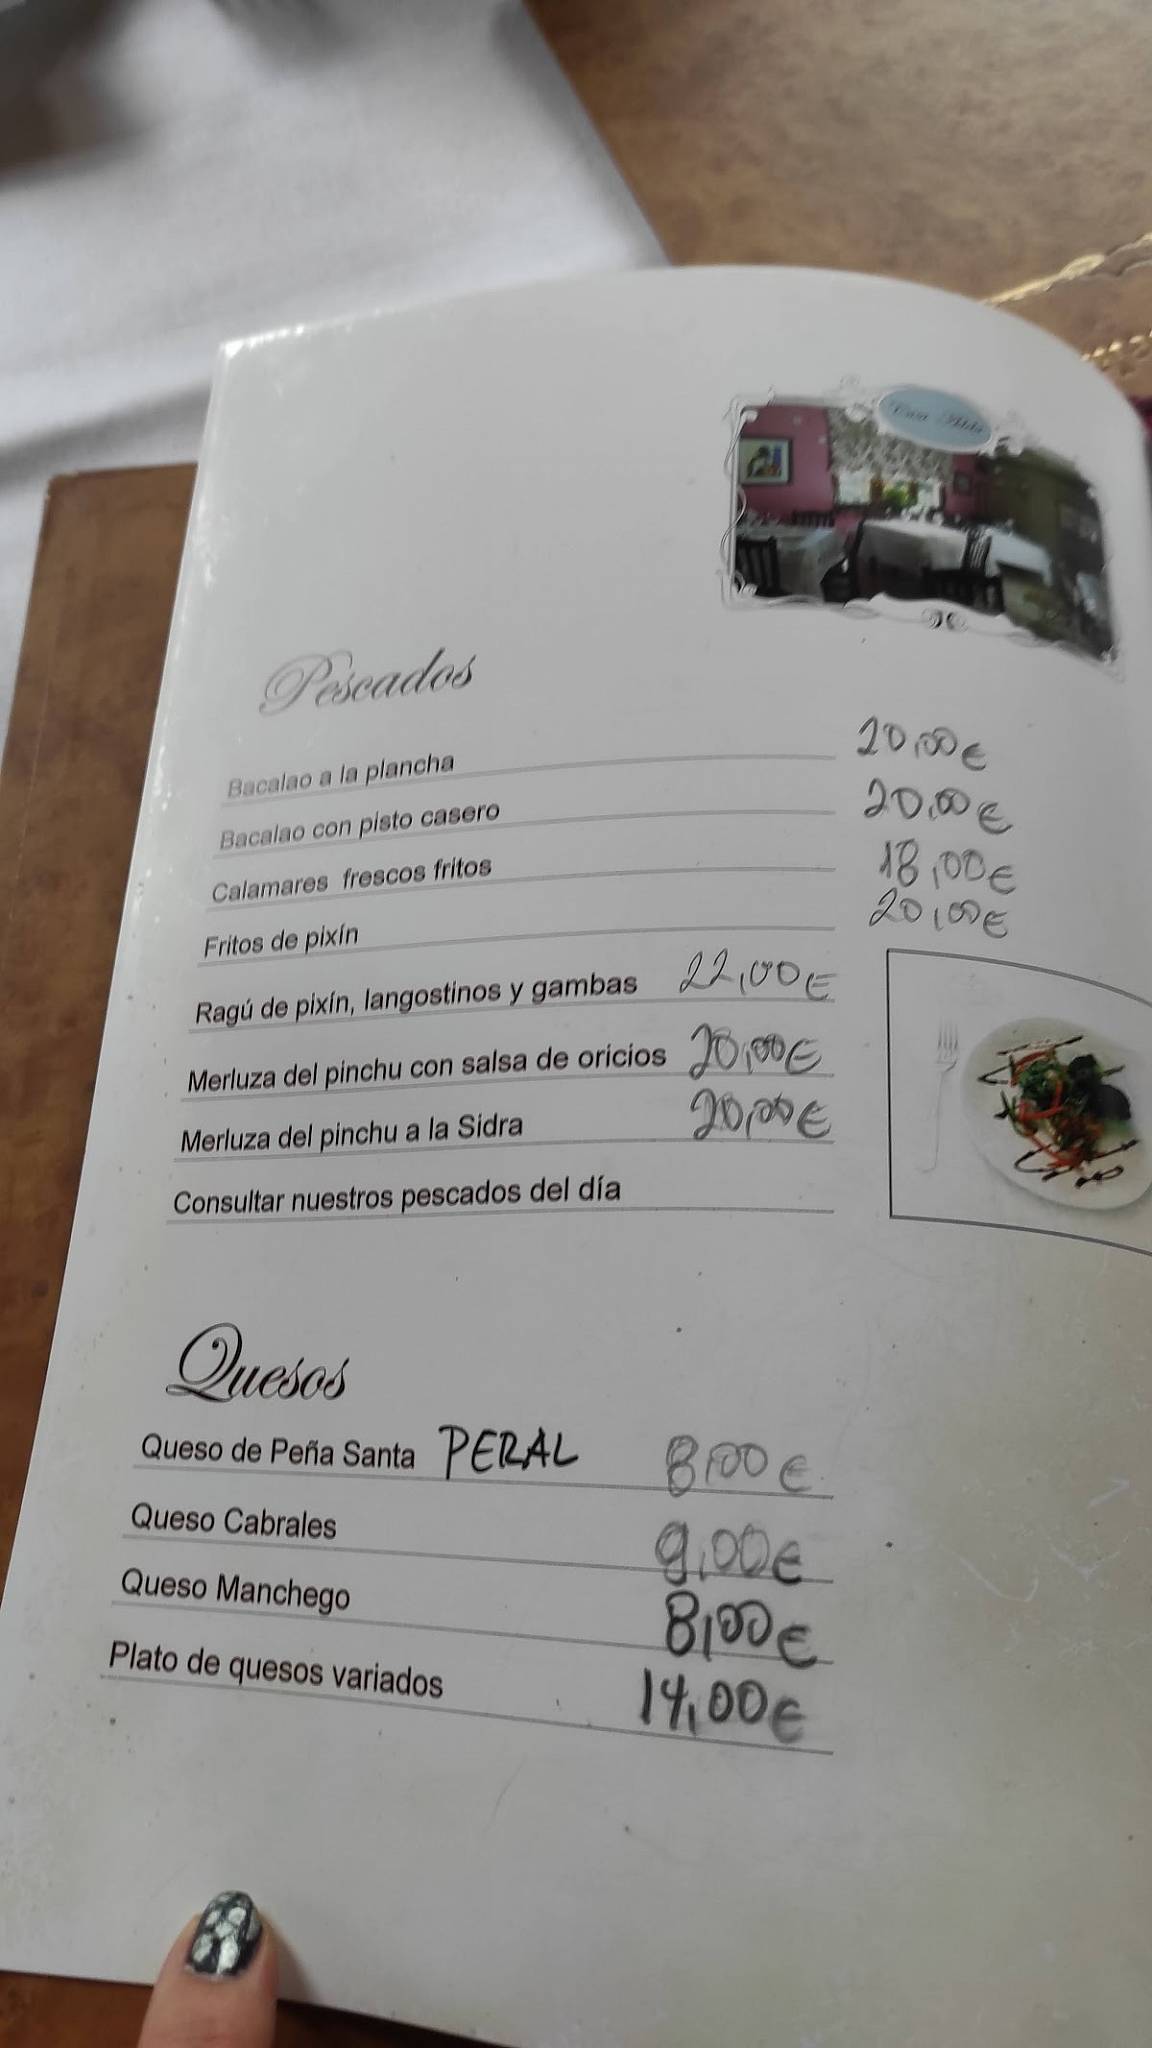 Pescados
Bacalao a la plancha 20,00€
Bacalao con pisto casero 20,00€
Calamares frescos fritos 18,00€
Fritos de pixín 20,00€
Ragú de pixín, langostinos y gambas 22,00€
Merluza del pinchu con salsa de oricios 20,00€
Merluza del pinchu a la Sidra 20,00€
Consultar nuestros pescados del día
Quesos
Queso de Peña Santa PERAL 8,00€
Queso Cabrales 9,00€
Queso Manchego 8,00€
Plato de quesos variados 14,00€